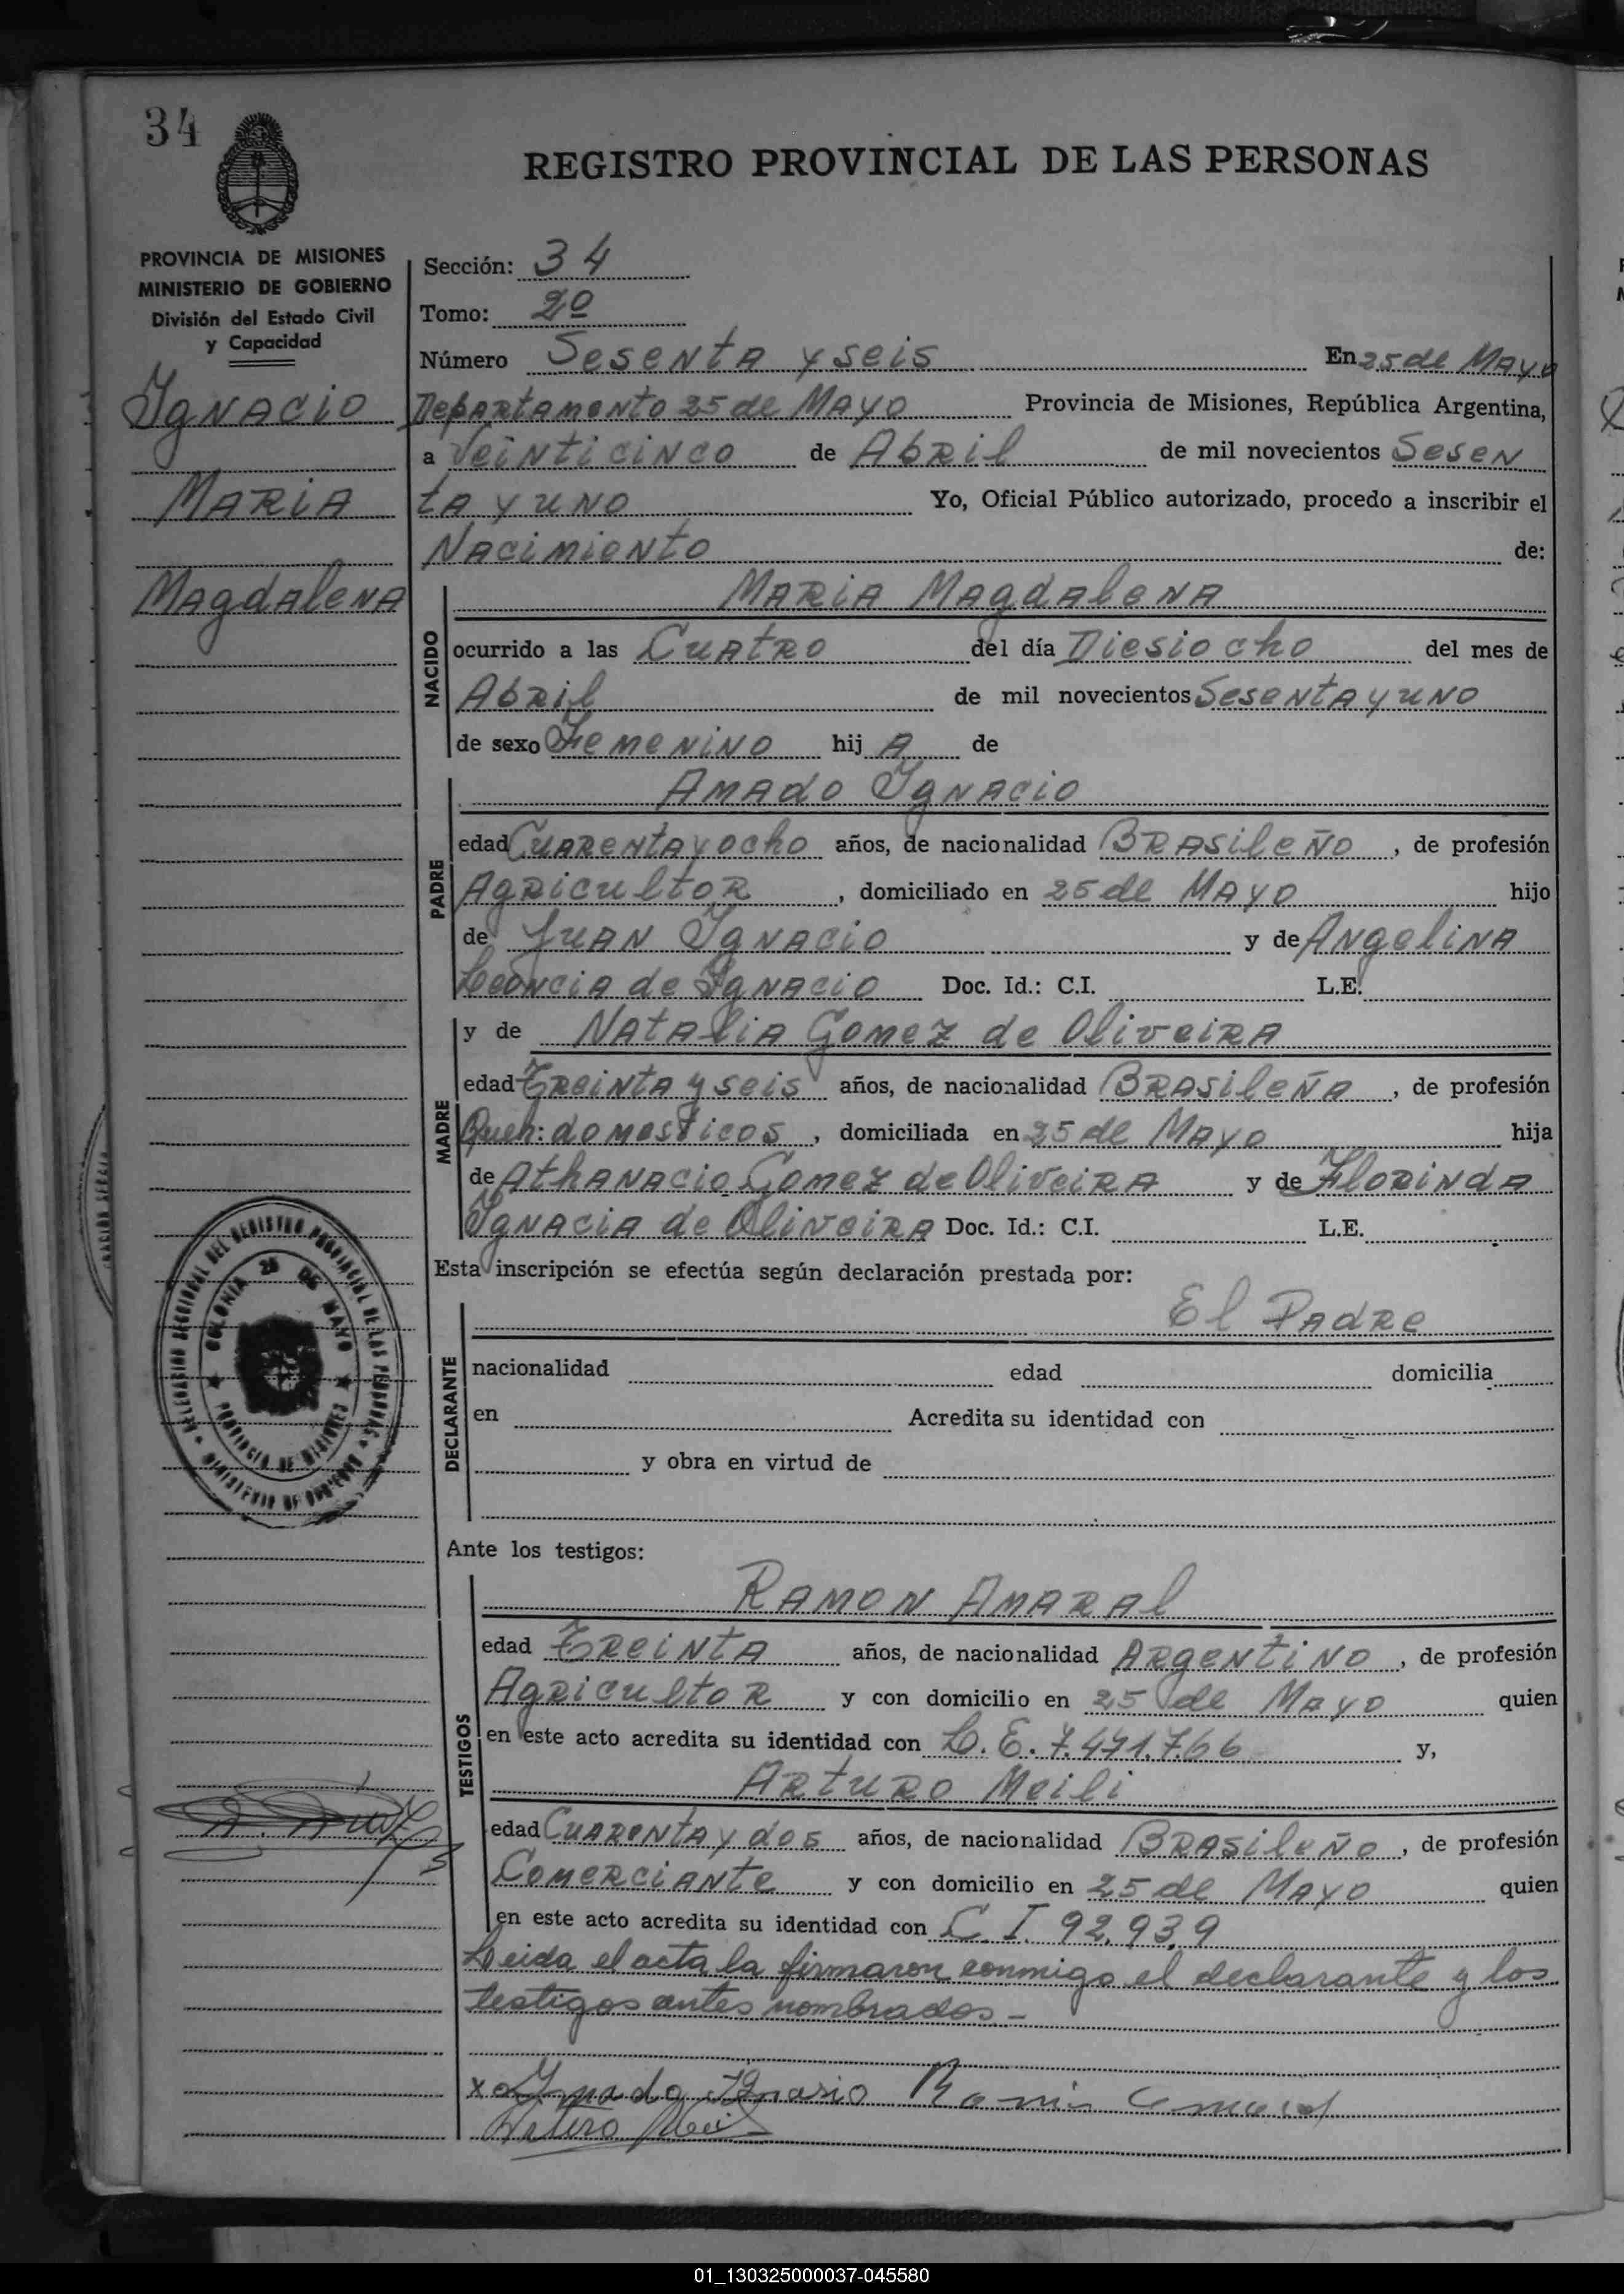 34
REGISTRO PROVINCIAL DE LAS PERSONAS
PROVINCIA DE MISIONES
MINISTERIO DE GOBIERNO
División del Estado Civil
y Capacidad
Ignacio
Maria
Magdalena
Sección: 34
Tomo: 2º
Número Sesenta y seis En 25 de Mayo
Departamento 25 de Mayo Provincia de Misiones, República Argentina,
a Veinticinco de Abril de mil novecientos Sesen
ta y uno Yo, Oficial Público autorizado, procedo a inscribir el
Nacimiento de:
NACIDO
Maria Magdalena
ocurrido a las Cuatro del día Diesiocho del mes de
Abril de mil novecientos Sesenta y uno
de sexo Femenino hij A de
PADRE
Amado Ignacio
edad Cuarenta y ocho años, de nacionalidad Brasileño, de profesión
Agricultor, domiciliado en 25 de Mayo hijo
de Juan Ignacio y de Angelina
Leoncia de Ignacio Doc. Id.: C.I. L.E.
MADRE
y de Natalia Gomez de Oliveira
edad Treinta y seis años, de nacionalidad Brasileña, de profesión
Queh: domesticos, domiciliada en 25 de Mayo hija
de Athanacio Gomez de Oliveira y de Florinda
Ignacia de Oliveira Doc. Id.: C.I. L.E.
Esta inscripción se efectúa según declaración prestada por:
DECLARANTE
El Padre
nacionalidad edad domicilia
en Acredita su identidad con
y obra en virtud de
DELEGACION SECCIONAL DEL REGISTRO PROVINCIAL DE LAS PERSONAS
COLONIA 25 DE MAYO
PROVINCIA DE MISIONES
MINISTERIO DE GOBIERNO
Ante los testigos:
TESTIGOS
Ramon Amaral
edad Treinta años, de nacionalidad Argentino, de profesión
Agricultor y con domicilio en 25 de Mayo quien
en este acto acredita su identidad con L. E. 7.471.766 y,
Arturo Meili
edad Cuarenta y dos años, de nacionalidad Brasileño, de profesión
Comerciante y con domicilio en 25 de Mayo quien
en este acto acredita su identidad con C. I. 92.939
Leida el acta la firmaron conmigo el declarante y los
testigos antes nombrados -
x Amado Ignasio Ramon Amaral
Arturo Meili
01_130325000037-045580